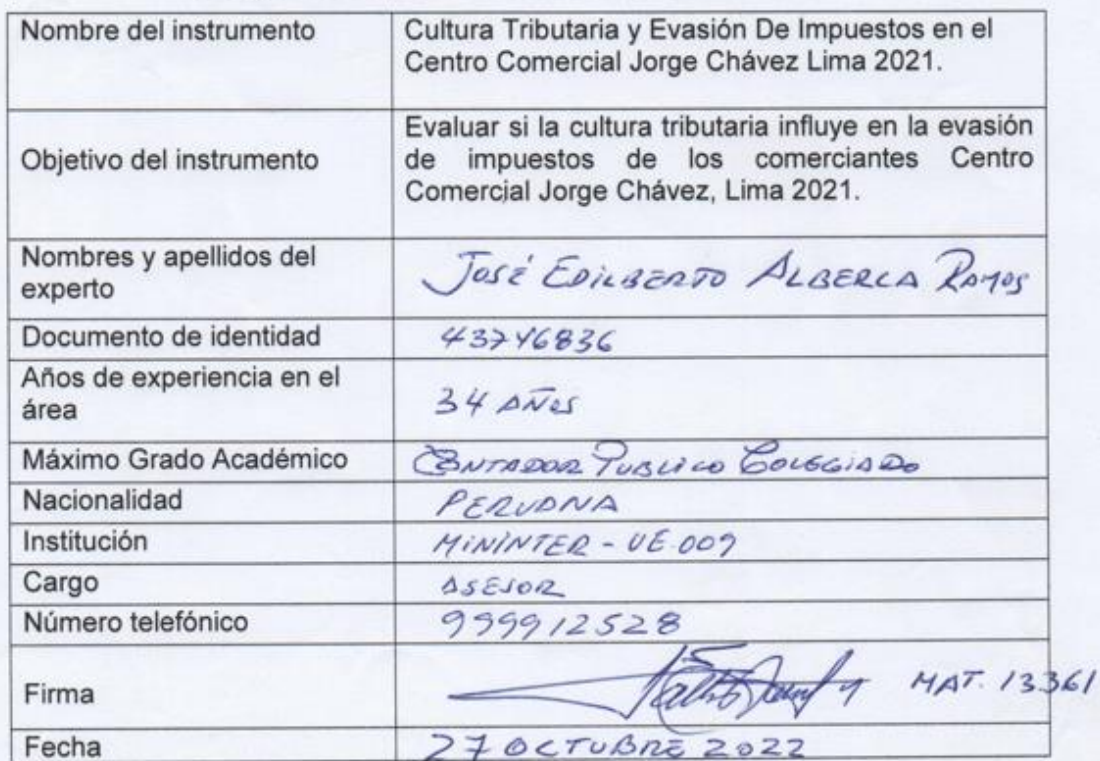 Nombre del instrumento
Cultura Tributaria y Evasión De Impuestos en el
Centro Comercial Jorge Chávez Lima 2021.
Objetivo del instrumento
Evaluar si la cultura tributaria influye en la evasión
de impuestos de los comerciantes Centro
Comercial Jorge Chávez, Lima 2021.
Nombres y apellidos del
experto
JOSÉ EDILBERTO ALBERCA RAMOS
Documento de identidad
43746836
Años de experiencia en el
área
34 AÑOS
Máximo Grado Académico
CONTADOR PUBLICO COLEGIADO
Nacionalidad
PERUANA
Institución
MININTER - UE.009
Cargo
ASESOR
Número telefónico
999912528
Firma
MAT. 13361
Fecha
27 OCTUBRE 2022